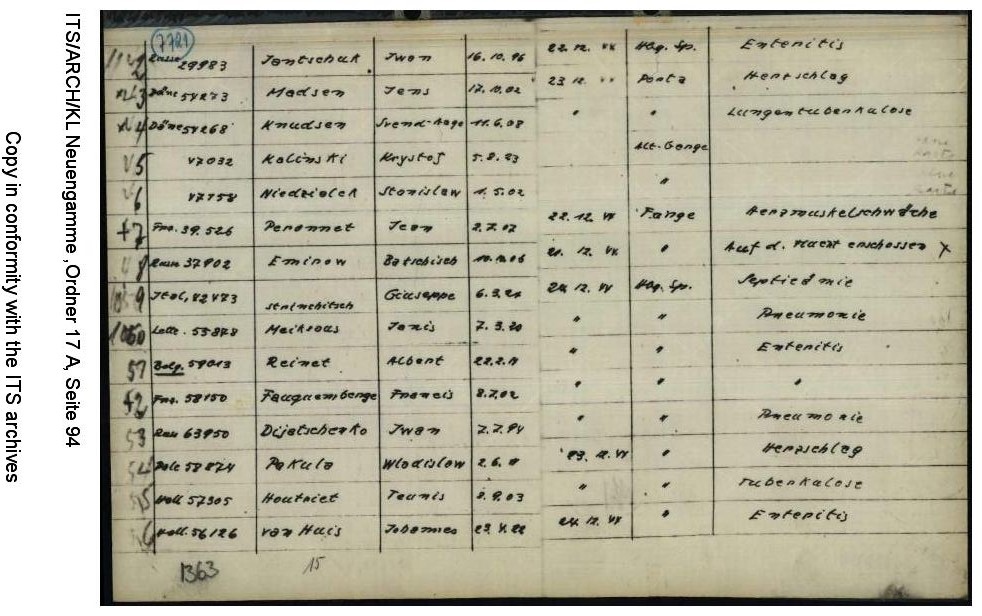 Copy in conformity with the ITS archives
ITS/ARCH/KL Neuengamme ,Ordner 17 A, Seite 94
7721
2 Russe 29983 Jantschuk Iwan 16.10.96 22.12. 44 Hbg. Sp. Enteritis
3 Däne 54273 Madsen Jens 17.10.02 23.12. Porta Herzschlag
4 Däne 54268 Knudsen Svend-Aage 11.6.08 " " Lungentuberkulose
5 47032 Kalinski Krystof 5.8.23 Alt. Garge
6 47758 Niedziolek Stanislaw 1.5.02 "
7 Frz. 39.526 Peronnet Jean 2.7.02 22.12. 44 Farge Herzmuskelschwäche
8 Russ 37902 Eminow Batschisch 06 21. 12. 44 " Auf d. Flucht erschossen X
9 Ital. 42473 Stalnchitsch Giuseppe 6.3.24 24.12. 44 Hbg. Sp. Septicämie
1050 Lette. 55878 Meikschs Janis 7.3.20 " " Pneumonie
51 Belg. 59013 Reinet Albert 22.2.11 " " Enteritis
52 Frz. 58150 Fauquembergue Francis 8.7.02 " " "
53 Russ 63950 Dijatschenko Iwan 7.7.94 " Pneumonie
54 Pole 58874 Pakula Wladislaw 2.6. 23. 12. 44 " Herzschlag
55 Holl. 57305 Houtriet Teunis 2.9.03 " " Tuberkulose
56 Holl. 56126 van Huis Johannes 23.4.22 24.12. 44 " Enteritis
1363 15